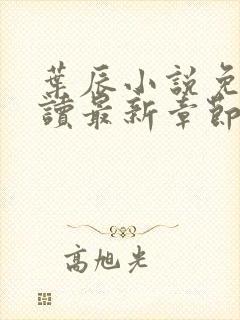 葉辰小說免
讀最新章節
高旭光